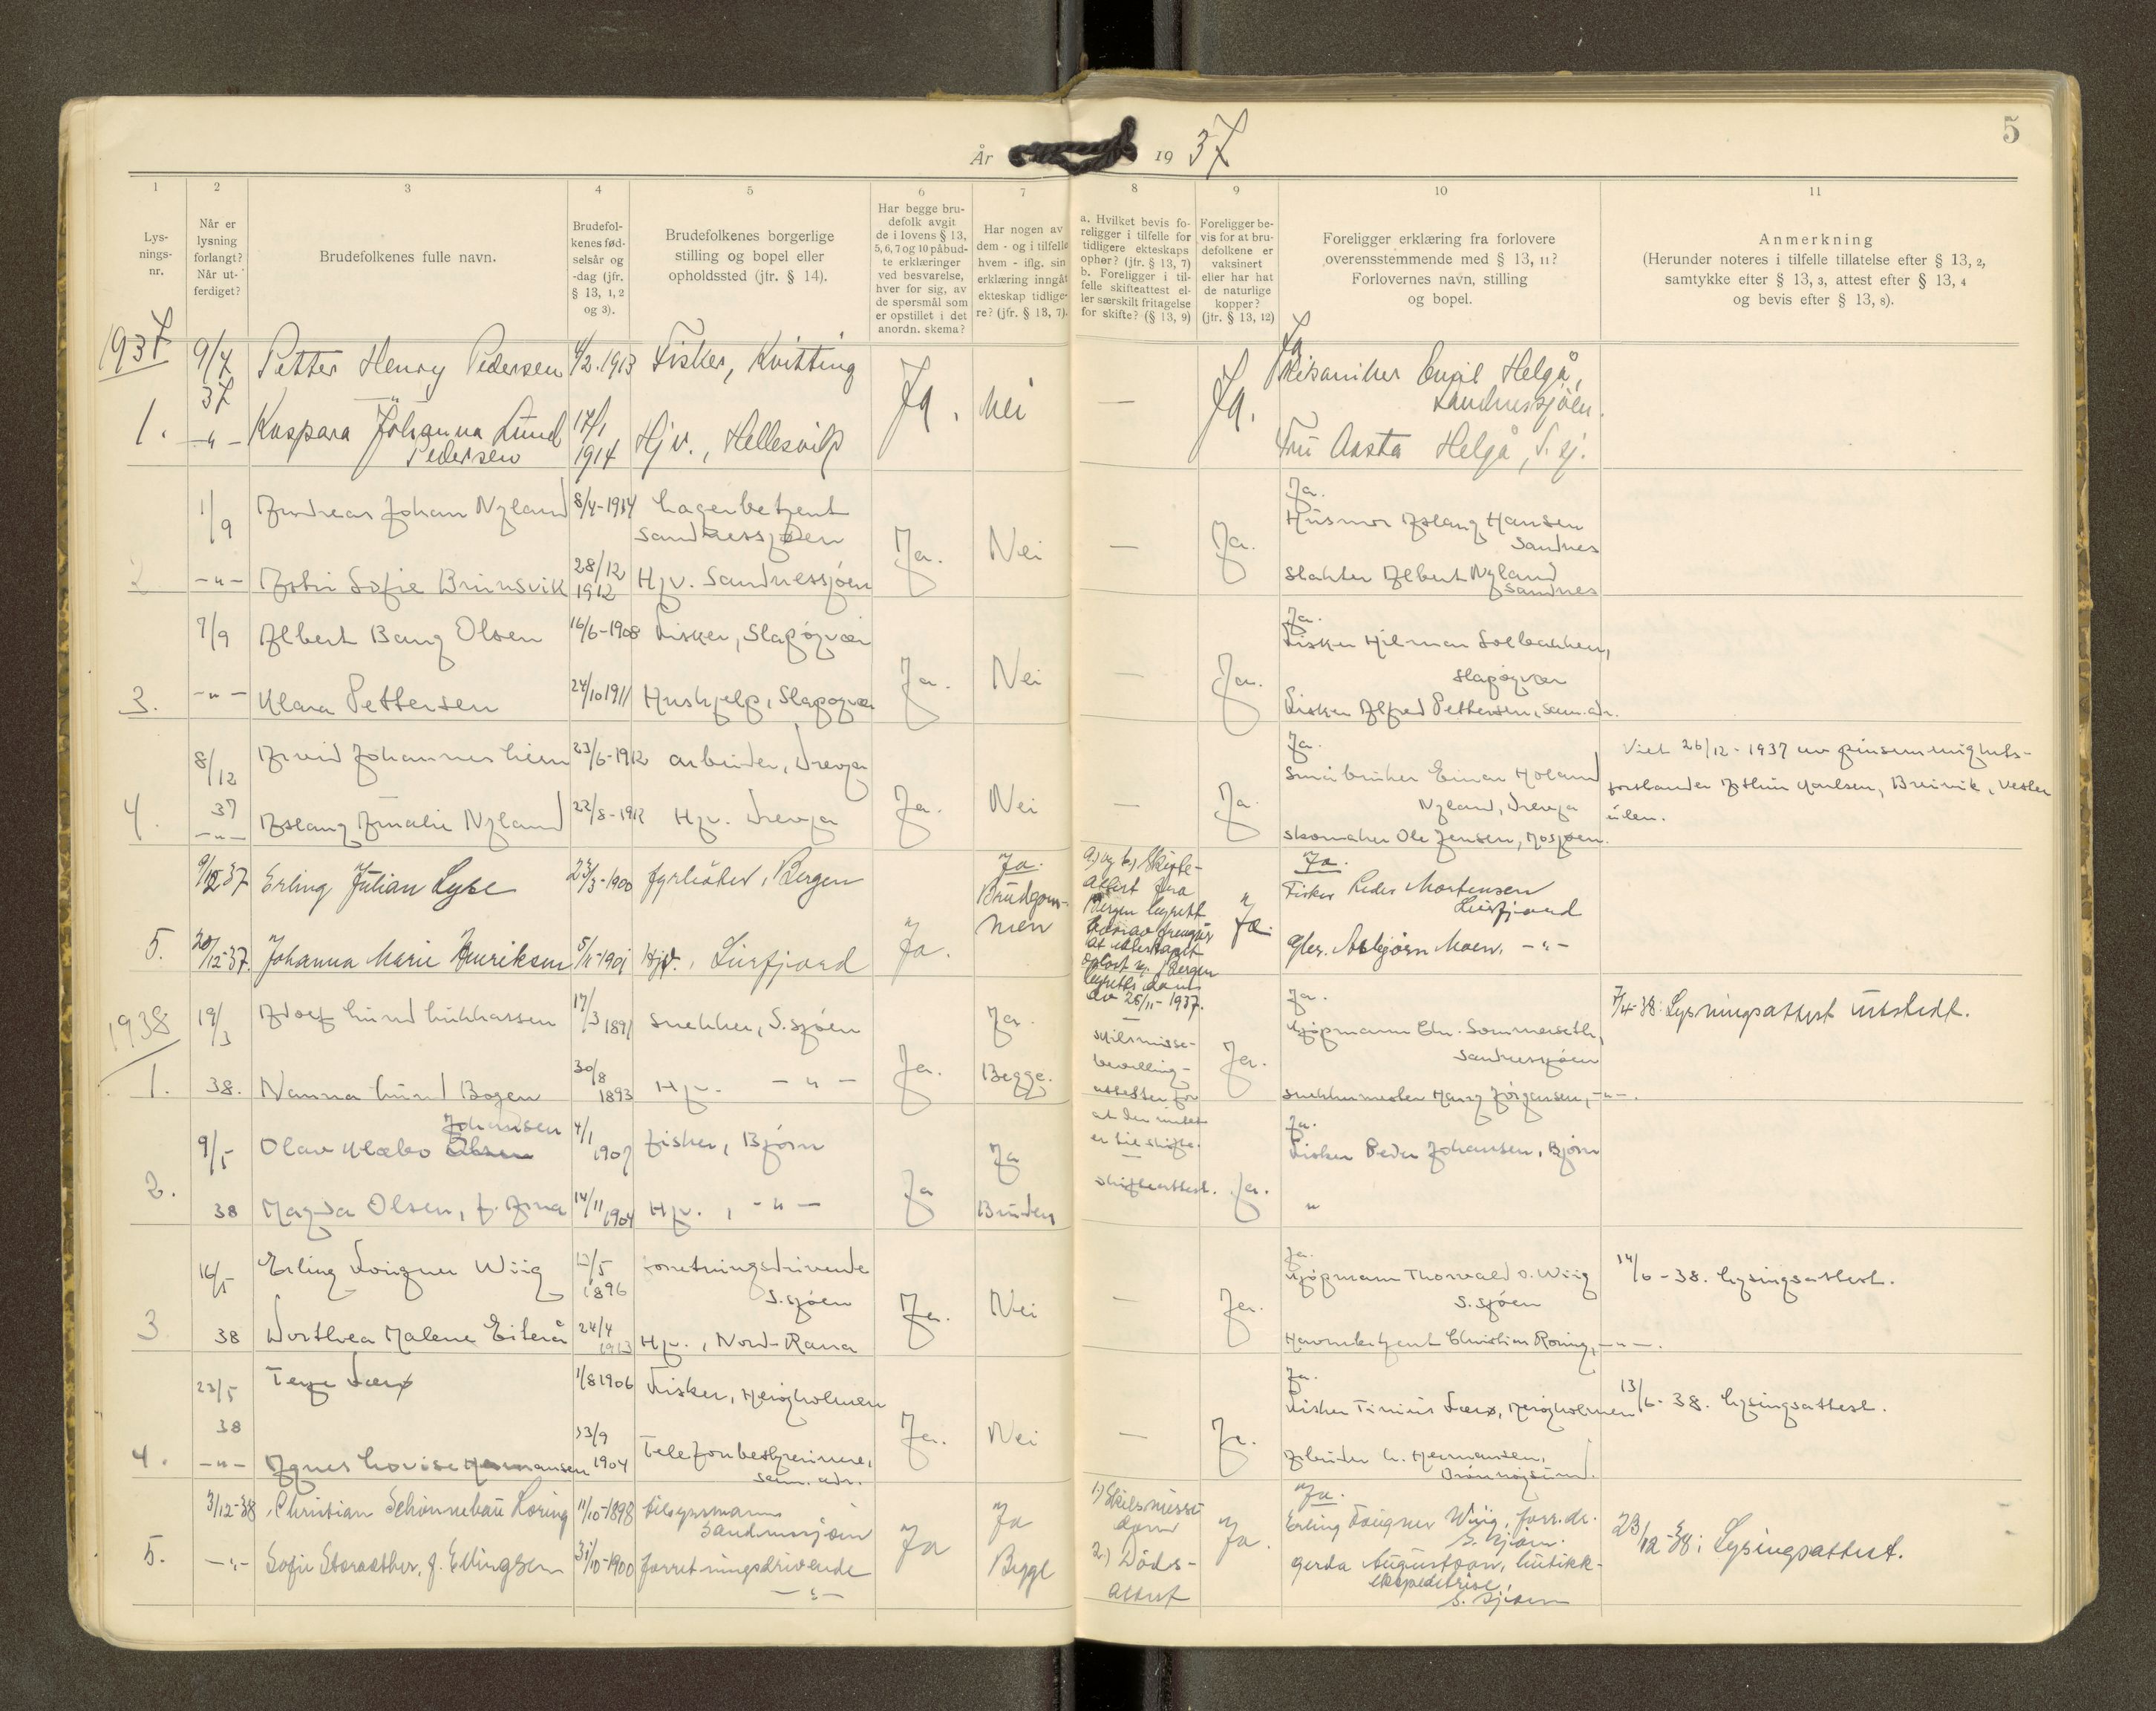 5
År 1937
1 2 3 4 5 6 7 8 9 10 11
Lys-
nings-
nr.
Når er
lysning
forlangt?
Når ut-
ferdiget?
Brudefolkenes fulle navn.
Brudefol-
kenes fød-
selsår og
-dag (jfr.
§ 13, 1, 2
og 3).
Brudefolkenes borgerlige
stilling og bopel eller
opholdssted (jfr. § 14).
Har begge bru-
defolk avgit
de i lovens § 13,
5, 6, 7 og 10 påbud-
te erklæringer
ved besvarelse,
hver for sig, av
de spørsmål som
er opstillet i det
anordn. skema?
Har nogen av
dem - og i tilfelle
hvem - iflg. sin
erklæring inngåt
ekteskap tidlige-
re? (jfr. § 13, 7).
a. Hvilket bevis fo-
religger i tilfelle for
tidligere ekteskaps
ophør? (jfr. § 13, 7)
b. Foreligger i til-
felle skifteattest el-
ler særskilt fritagelse
for skifte? (§ 13, 9)
Foreligger be-
vis for at bru-
defolkene er
vaksinert
eller har hat
de naturlige
kopper?
(jfr. § 13, 12)
Foreligger erklæring fra forlovere
overensstemmende med § 13, 11?
Forlovernes navn, stilling
og bopel.
Anmerkning
(Herunder noteres i tilfelle tillatelse efter § 13, 2,
samtykke efter § 13, 3, attest efter § 13, 4
og bevis efter § 13, 8).
1937
9/7 Petter Henry Pedersen 4/2.1913 Fisker, Kvitting
37
Ja. Nei — Ja.
Ja
Mekaniker Emil Helgå,
Sandnessjøen.
1. -"- Kaspara Johanna Lund 17/1
Pedersen 1914 Hjv.,
Fru Aasta Helgå, S.sj.
1/9 Andreas Johan Nyland 8/4-1914 Lagerbetjent
Sandnessjøen
Ja. Nei — Ja.
Ja.
Husmor Aslaug Hansen
Sandnes
2 -"- Astri Sofie Brunsvik 28/12
1912 Hjv. Sandnessjøen
Slakter Albert Nyland
Sandnes
7/9 Albert Bang Olsen 16/6-1908 Fisker, Slapøyvær
Ja. Nei — Ja.
Ja.
Fisker Hilmar Solbakken,
Slapøyvær
3. -"- Klara Pettersen 24/10 1911 Hushjelp, Slapøyvær
Fisker Alfred Pettersen, sam. adr.
8/12 Arvid Johannes Lien 23/6-1912 arbeider, Drevja
37
Ja. Nei — Ja
Ja.
Småbruker Einar Holand
Nyland, Drevja
Viet 26/12-1937 av pinsemenighets-
forstander Karlsen, Breivik,
4. -"- Aslaug Amalie Nyland 22/8-1912 Hjv. Drevja
Skomaker Ole Jensen, Mosjøen.
9/12 37 Erling Julian Lybe 23/3-1900 fyrbøter, Bergen
Ja.
Brudgom-
men
a.) og b.) Skifte-
attest fra
Bergen byrett
hvorav fremgår
at ekteskapet
opløst v. Bergen
byretts dom
av 26/11-1937.
Ja.
Ja.
Fisker Peder Mortensen
Leirfjord
5. 20/12-37. Johanna Marie Henriksen 5/11-1901 Hjv., Leirfjord Ja.
Asbjørn Moen, -"-
1938
19/3 Adolf Lund Lukkassen 17/3 1891 Snekker, S.sjøen
Ja.
Begge.
Skilsmisse-
bevilling-
attester for
at der intet
er til skifte.
Ja. Ja.
Ja.
Kjøpmann Chr. Sommerseth,
Sandnessjøen
7/4-38: Lysningsattest utstedt.
1. 38. Nanna Lund Bogen 30/8
1893 Hjv. -"-
Snekkermester Harry Jørgensen, -"-.
9/5 Olav Klæbo Olsen Johansen 4/1
1907 fisker, Bjørn
Ja
Bruden
Skifteattest.
Ja Ja.
Ja.
Fisker Peder Johansen, Bjørn
2. 38 Magda Olsen, f. 14/11 1904 Hjv., -"-
"
16/5 Erling Fougner Wiig 12/5
1896 Forretningsdrivende
S.sjøen
Ja. Nei — Ja.
Ja.
Kjøpmann Thorvald O. Wiig
S.sjøen
14/6-38. Lysingsattest.
3 38 Dorthea Malene Eiterå 24/4
1913 Hjv., Nord-Rana
Havnebetjent Christian Roring, -"-.
23/5 Terje Færø 1/8 1906 Fisker, Herøyholmen
38
Ja. Nei — Ja.
Ja.
Fisker Tinius Færø, Herøyholmen
13/6-38. Lysingsattest.
4. -"- Agnes Lovise Hermansen 13/9
1904 Telefonbestyrerinne,
sam. adr.
Arbeider L. Hermansen,
Brønnøysund.
3/12-38 Christian Schønnebau Roring 11/10-1898 tilsynsmann
Sandnessjøen
Ja
Ja
Begge
1) Skilsmisse
dom
2.) Døds-
attest
Ja.
Ja.
Erling Fougner Wiig, forr.dr.
S.sjøen.
23/12-38: Lysingsattest.
5. -"- Sofie Storæther, f. Ellingsen 31/10-1900 forretningsdrivende
-"-
Gerda Augustson, butikk-
ekspeditrise,
S. Sjøen